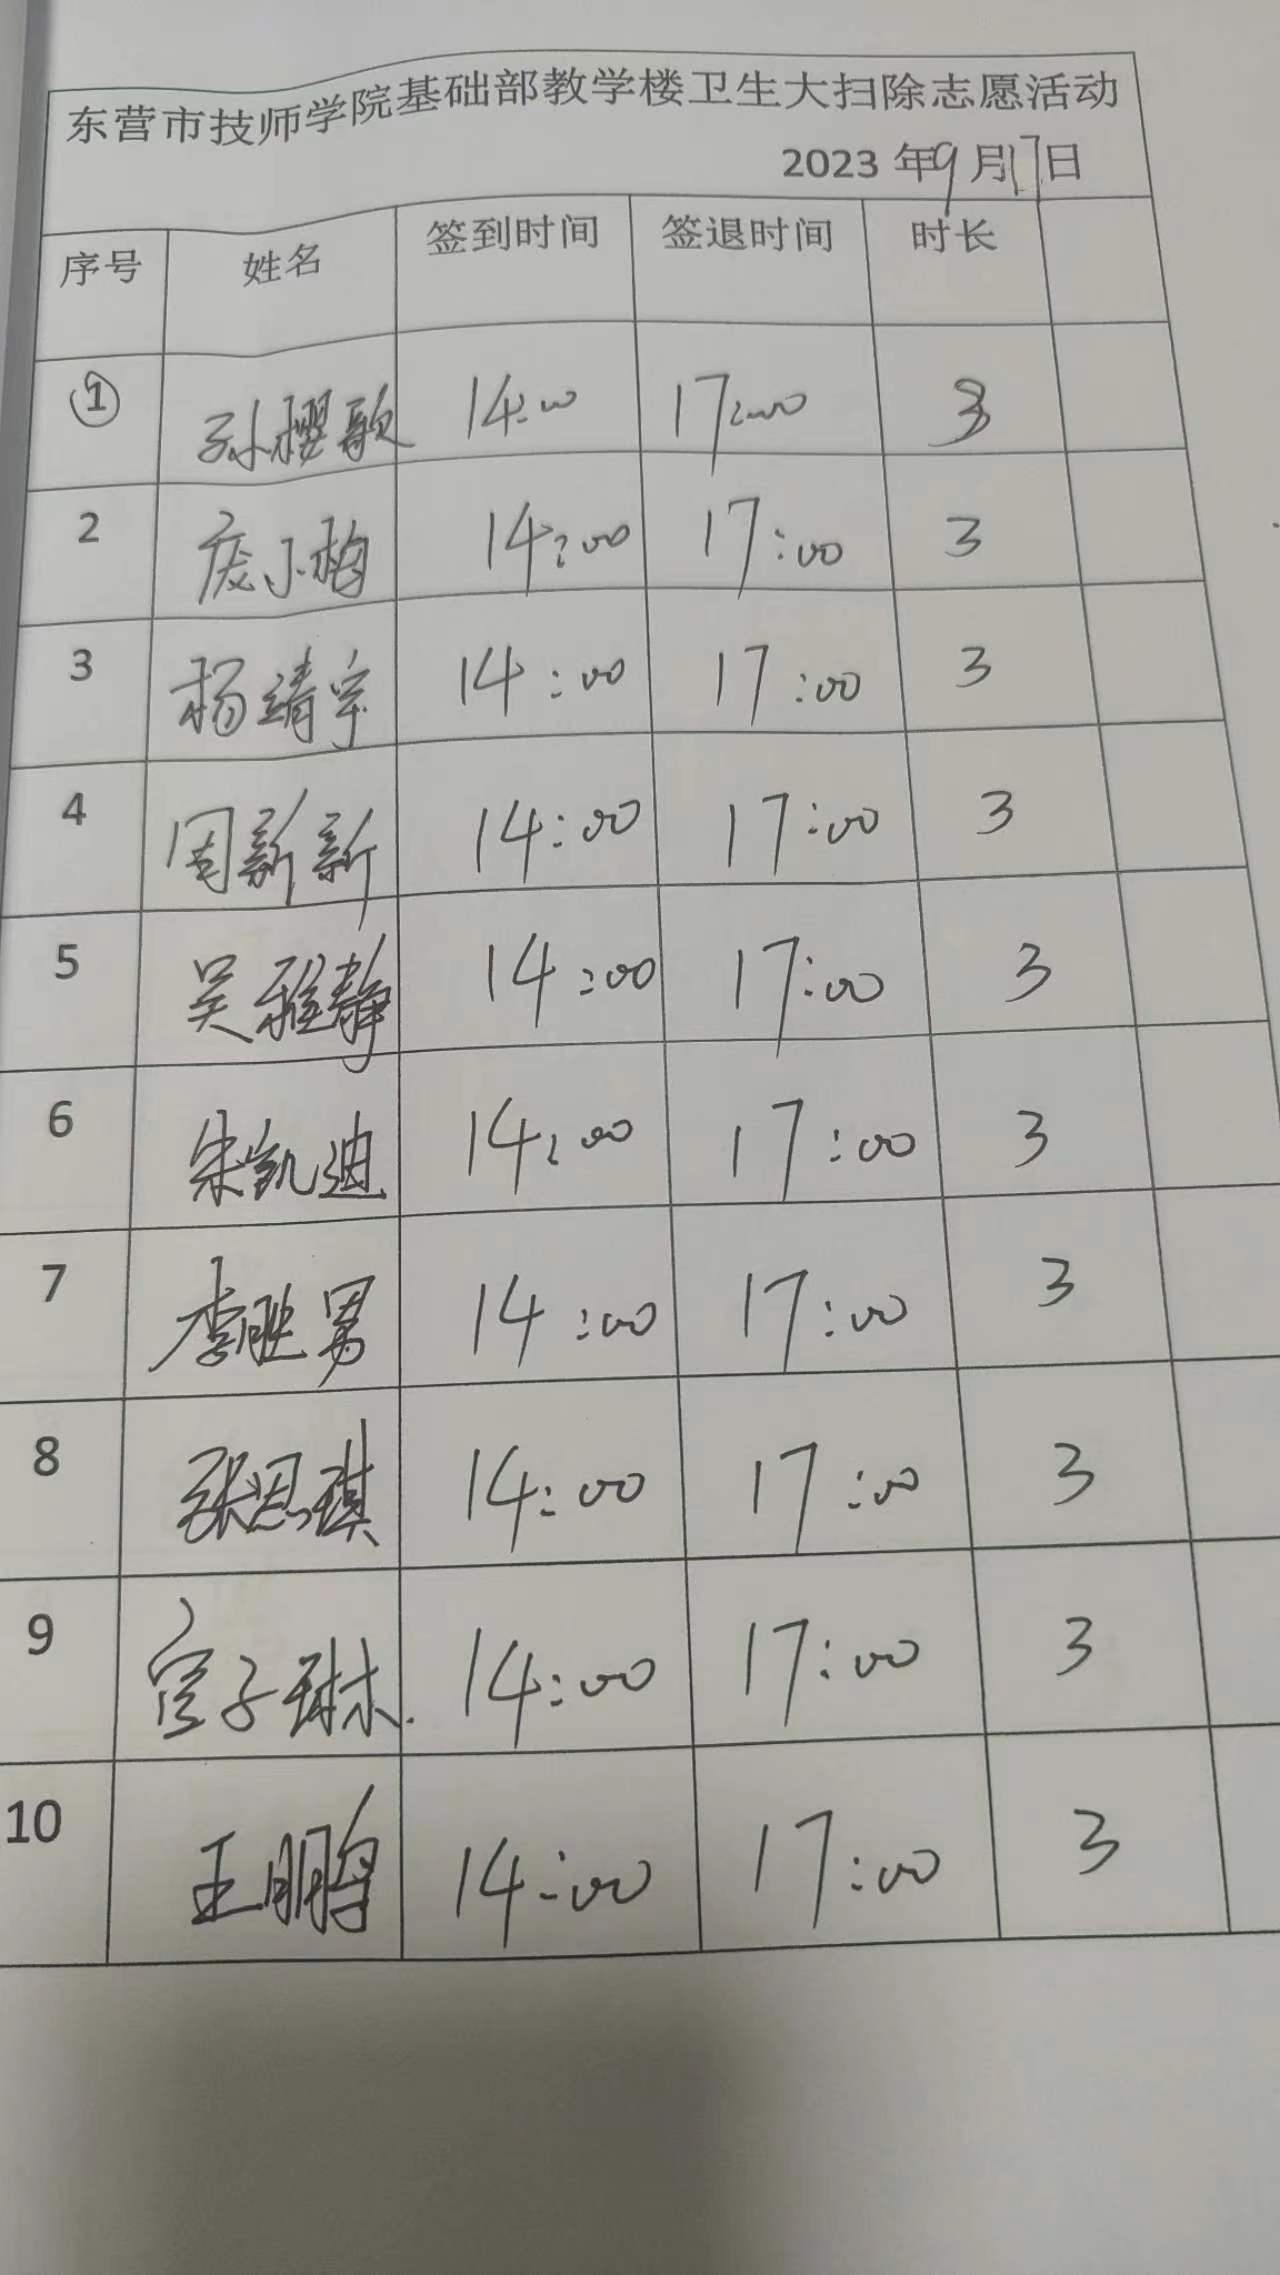 东营市技师学院基础部教学楼卫生大扫除志愿活动
2023 年9月17日
序号 姓名 签到时间 签退时间 时长
① 孙樱歌 14:00 17:00 3
2 庞小梅 14:00 17:00 3
3 杨靖宇 14:00 17:00 3
4 周新新 14:00 17:00 3
5 吴雅静 14:00 17:00 3
6 宋凯迪 14:00 17:00 3
7 李胜男 14:00 17:00 3
8 张思琪 14:00 17:00 3
9 官子琳 14:00 17:00 3
10 王鹏 14:00 17:00 3